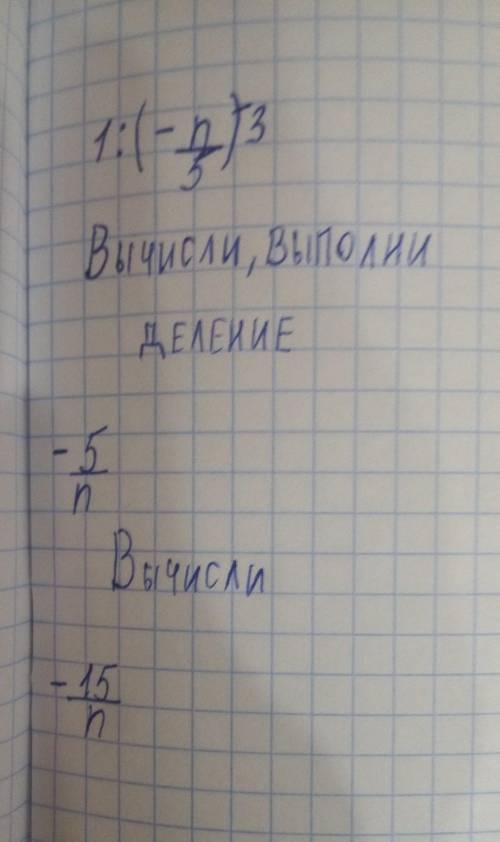 1:(-n/5)·3
Вычисли, выполни
деление
-5/n
Вычисли
-15/n